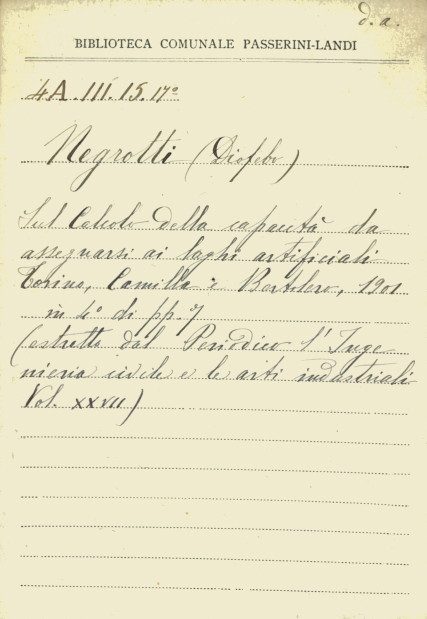 d.a.
BIBLIOTECA COMUNALE PASSERINI-LANDI
4A.III.15.17º
Negrotti (Diofebo)
Sul Calcolo della capacità da
assegnarsi ai laghi artificiali
Torino, Camilla e Bertolero, 1901
in 4º di pp. 7
(estratto dal Periodico l'Inge
nieria civile e le arti industriali
Vol. XXVII)